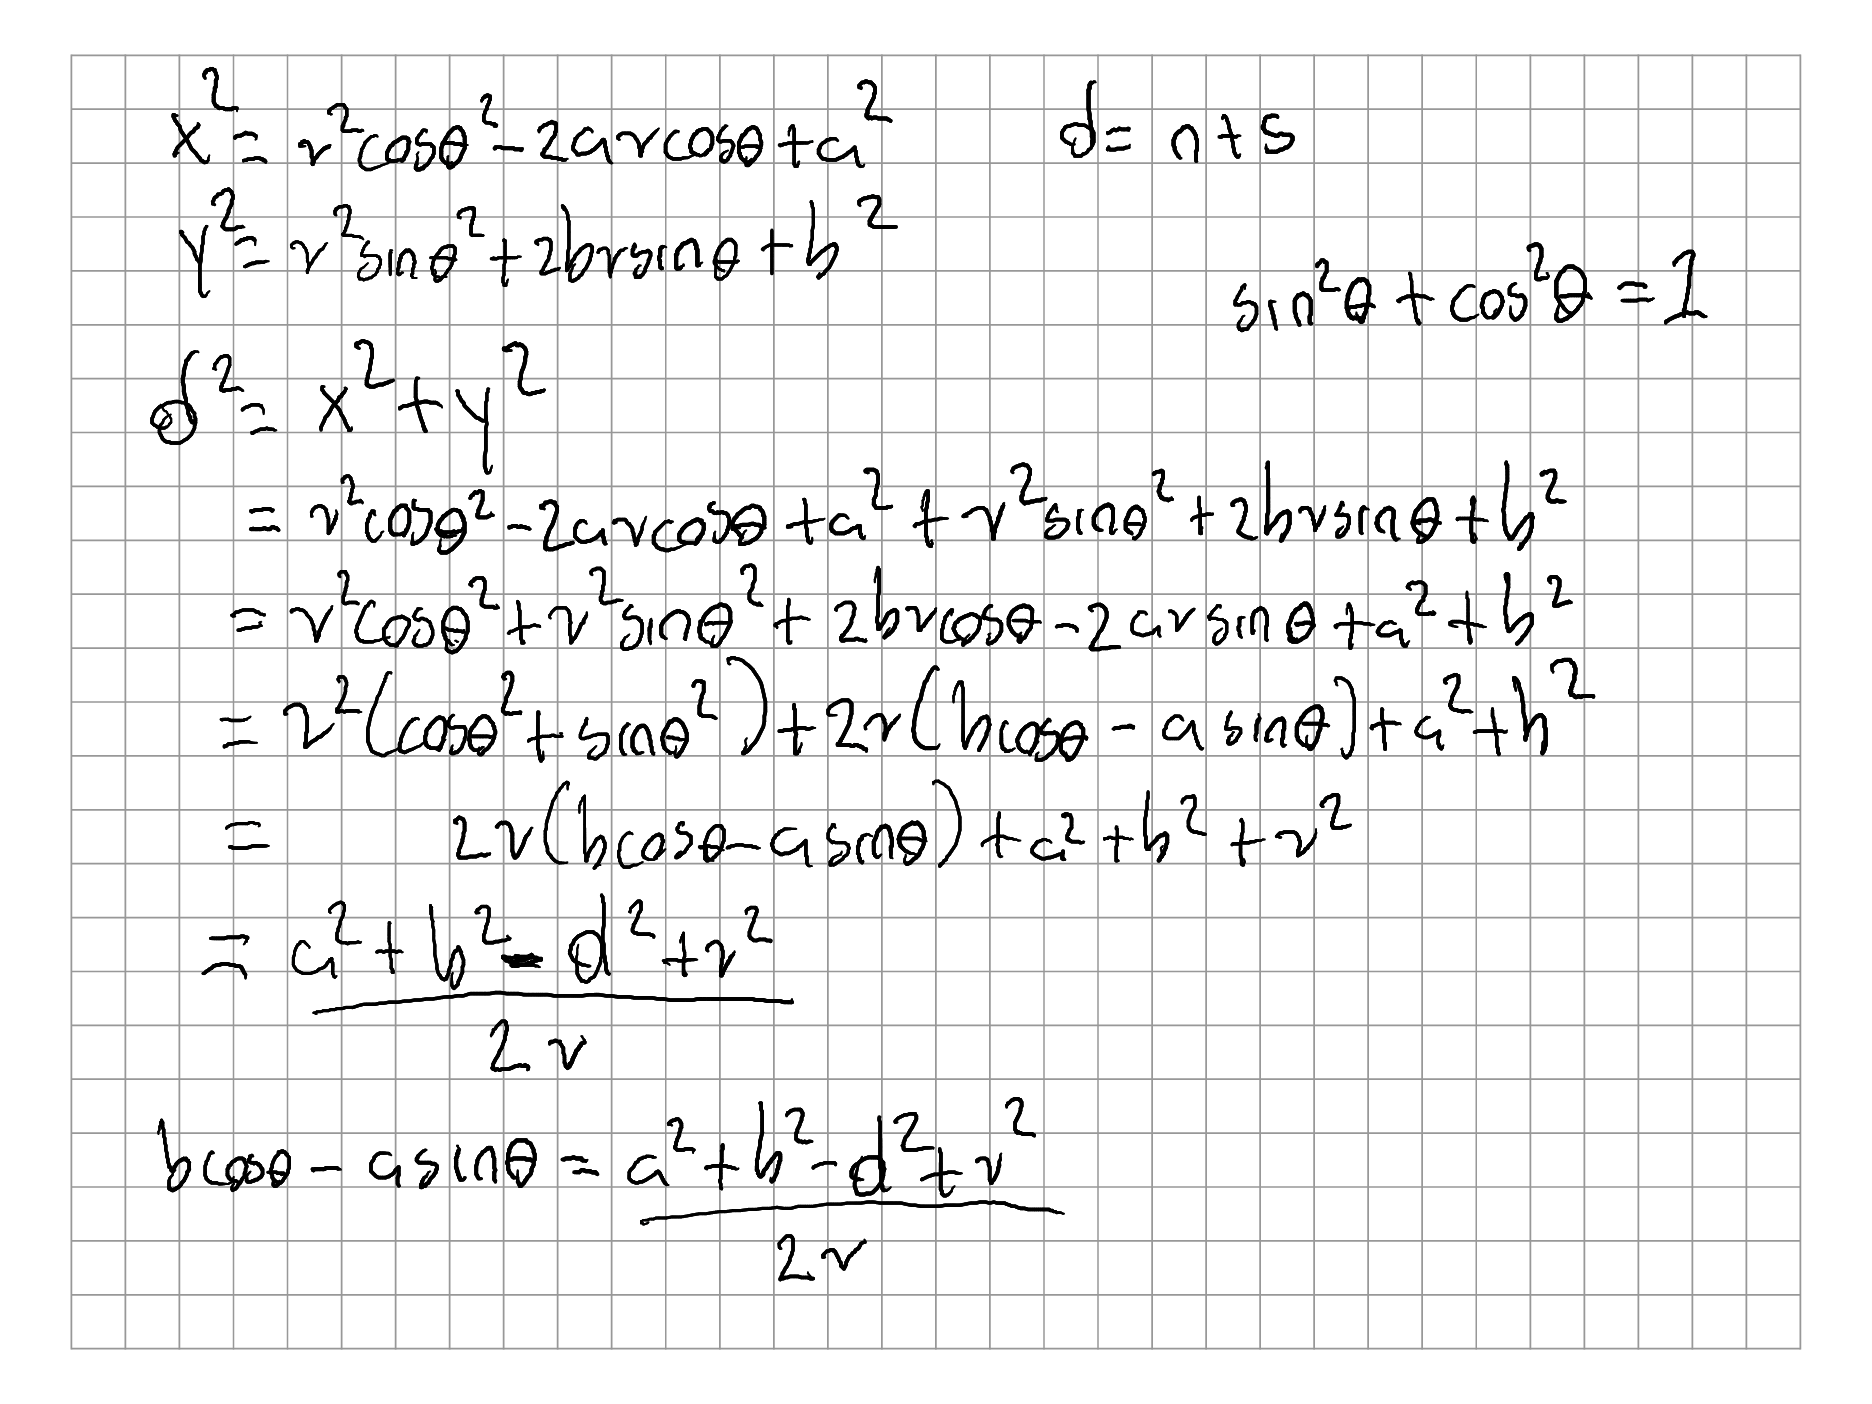 x² = r²cosθ² - 2arcosθ + a²
d = n + s
y² = r²sinθ² + 2brsinθ + b²
sin²θ + cos²θ = 1
d² = x² + y²
= r²cosθ² - 2arcosθ + a² + r²sinθ² + 2brsinθ + b²
= r²cosθ² + r²sinθ² + 2brcosθ - 2arsinθ + a² + b²
= r²(cosθ² + sinθ²) + 2r(bcosθ - a sinθ) + a² + b²
= 2r(bcosθ - a sinθ) + a² + b² + r²
= a² + b² - d² + r²
2r
bcosθ - a sinθ = a² + b² - d² + r²
2r